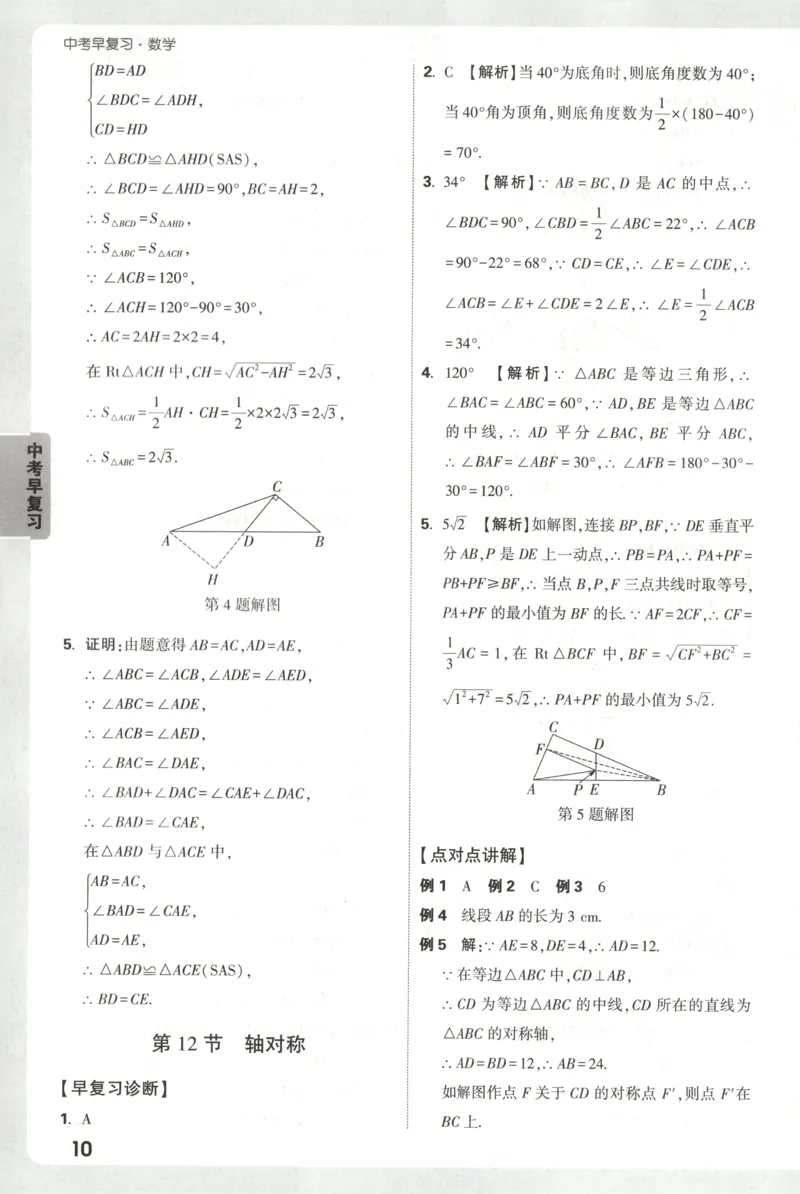 中考早复习·数学
BD=AD
∠BDC=∠ADH,
CD=HD
∴ △BCD≌△AHD(SAS),
∴ ∠BCD=∠AHD=90°,BC=AH=2,
∴ S△BCD=S△AHD,
∴ S△ABC=S△ACH,
∵ ∠ACB=120°,
∴ ∠ACH=120°-90°=30°,
∴ AC=2AH=2×2=4,
在 Rt△ACH 中,CH=√(AC²-AH²)=2√3,
∴ S△ACH=1/2AH·CH=1/2×2×2√3=2√3,
∴ S△ABC=2√3.
C
A D B
H
第 4 题解图
5. 证明:由题意得 AB=AC,AD=AE,
∴ ∠ABC=∠ACB,∠ADE=∠AED,
∵ ∠ABC=∠ADE,
∴ ∠ACB=∠AED,
∴ ∠BAC=∠DAE,
∴ ∠BAD+∠DAC=∠CAE+∠DAC,
∴ ∠BAD=∠CAE,
在△ABD 与△ACE 中,
AB=AC,
∠BAD=∠CAE,
AD=AE,
∴ △ABD≌△ACE(SAS),
∴ BD=CE.
第 12 节 轴对称
【早复习诊断】
1. A
10
中考早复习
2. C 【解析】当 40°为底角时,则底角度数为 40°;
当 40°角为顶角,则底角度数为1/2×(180-40°)
=70°.
3. 34° 【解析】∵ AB=BC,D 是 AC 的中点,∴
∠BDC=90°,∠CBD=1/2∠ABC=22°,∴ ∠ACB
=90°-22°=68°,∵ CD=CE,∴ ∠E=∠CDE,∴
∠ACB=∠E+∠CDE=2∠E,∴ ∠E=1/2∠ACB
=34°.
4. 120° 【解析】∵ △ABC 是等边三角形,∴
∠BAC=∠ABC=60°,∵ AD,BE 是等边△ABC
的中线,∴ AD 平分 ∠BAC, BE 平分 ABC,
∴ ∠BAF=∠ABF=30°,∴ ∠AFB=180°-30°-
30°=120°.
5. 5√2 【解析】如解图,连接 BP,BF,∵ DE 垂直平
分 AB,P 是 DE 上一动点,∴ PB=PA,∴ PA+PF=
PB+PF≥BF,∴ 当点 B,P,F 三点共线时取等号,
PA+PF 的最小值为 BF 的长.∵ AF=2CF,∴ CF=
1/3AC=1,在 Rt△BCF 中,BF=√(CF²+BC²)=
√(1²+7²)=5√2,∴ PA+PF 的最小值为 5√2.
C
F D
A P E B
第 5 题解图
【点对点讲解】
例 1 A 例 2 C 例 3 6
例 4 线段 AB 的长为 3 cm.
例 5 解:∵ AE=8,DE=4,∴ AD=12.
∵ 在等边△ABC 中,CD⊥AB,
∴ CD 为等边△ABC 的中线,CD 所在的直线为
△ABC 的对称轴,
∴ AD=BD=12,∴ AB=24.
如解图作点 F 关于 CD 的对称点 F′,则点 F′在
BC 上.